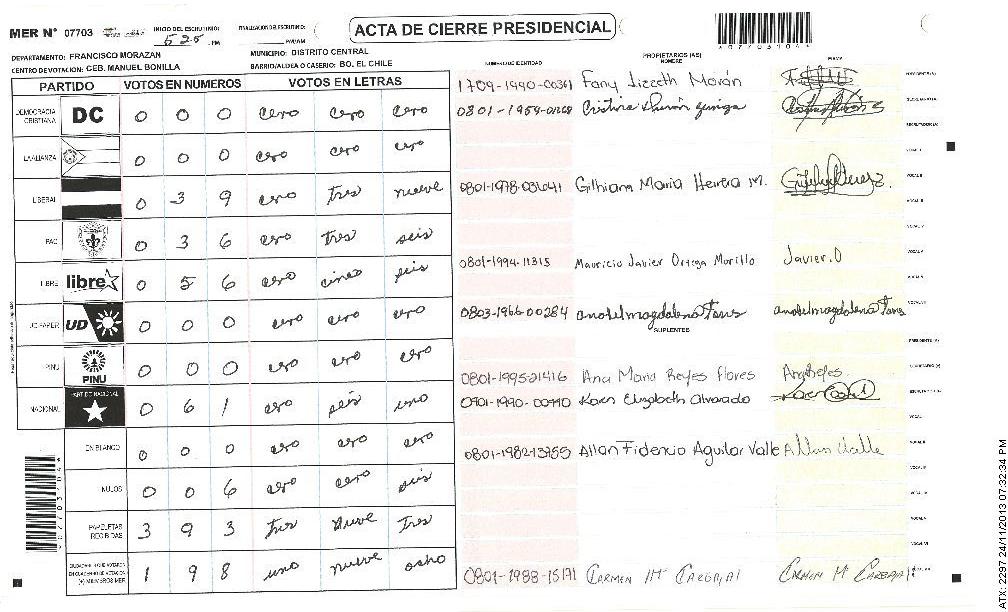 MER N° 07703
INICIO DEL ESCRUTINIO: 525 PM
FINALIZACION DEL ESCRUTINIO: PM/AM
ACTA DE CIERRE PRESIDENCIAL
DEPARTAMENTO: FRANCISCO MORAZAN
MUNICIPIO: DISTRITO CENTRAL
CENTRO DE VOTACION: CEB. MANUEL BONILLA
BARRIO/ALDEA O CASERIO: BO. EL CHILE
NUMERO DE IDENTIDAD
PROPIETARIOS (AS)
NOMBRE
FIRMA
PARTIDO VOTOS EN NUMEROS VOTOS EN LETRAS
DEMOCRACIA CRISTIANA DC 0 0 0 cero cero cero
LA ALIANZA 0 0 0 cero cero cero
LIBERAL 0 3 9 cero tres nueve
PAC 0 3 6 cero tres seis
LIBRE libre 0 5 6 cero cinco seis
UD FAPER UD 0 0 0 cero cero cero
PINU PINU 0 0 0 cero cero cero
NACIONAL PARTIDO NACIONAL 0 6 1 cero seis uno
EN BLANCO 0 0 0 cero cero cero
NULOS 0 0 6 cero cero seis
PAPELETAS RECIBIDAS 3 9 3 tres nueve tres
CIUDADANOS QUE VOTARON EN CUADERNO DE VOTACION (+) MIEMBROS MER 1 9 8 uno nueve ocho
1709-1990-00361 Fany Lizeth Morán
Cristina
Gilhiam Maria Herrera M.
0801-1994-11315 Mauricio Javier Ortega Morillo Javier.O
0803-1966-00284
SUPLENTES
0801-1995-21416 Ana Maria Reyes Flores
Karen Elizabeth Alvarado
0801-1982-13755 Allan Fidencio Aguilar Valle Allan Valle
0801-1988-15171 CARMEN M CARBAJAL CARMEN M CARBAJAL
ATX: 2297 24/11/2013 07:32:34 PM